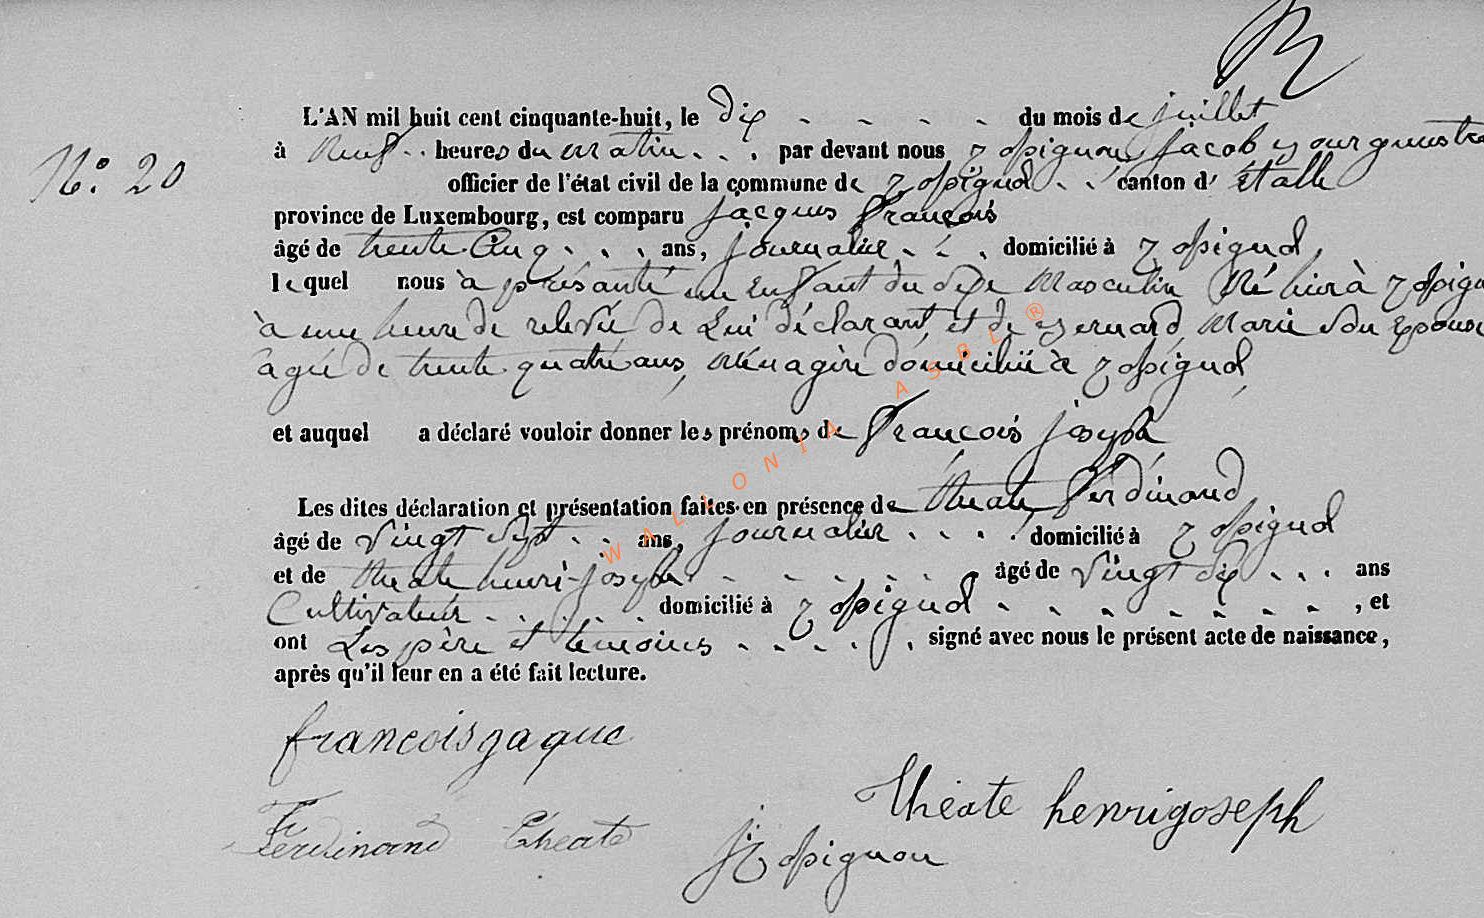 L'AN mil huit cent cinquante-huit, le dix - - - - du mois de juillet
N.° 20
à Neuf .. heures du matin . . . par devant nous, Jacob Bourgmestre
officier de l'état civil de la commune de . . canton d' étalle
province de Luxembourg, est comparu jacques françois
âgé de trente Cinq . . . ans, journalier . . . domicilié à
lequel nous à présanté un Enfant du sexe Masculin Né hier à
à une heure de relevée de Lui déclarant, et de Bernard, Marie son Epouse
agée de trente quatre ans, Ménagère domiciliée à
et auquel a déclaré vouloir donner les prénoms de françois joseph
Les dites déclaration et présentation faites en présence de théate ferdinand
âgé de Vingt Sept . . ans, journalier . . . . domicilié à
et de théate henri-joseph - - - - - - âgé de Vingt dix . . . ans
Cultivateur . . . . . domicilié à - - - - - - - , et
ont Les père et témoins - - - - , signé avec nous le présent acte de naissance,
après qu'il leur en a été fait lecture.
francois jaque
théate henrigoseph
Ferdinand théate
WALLONIA ASBL ®